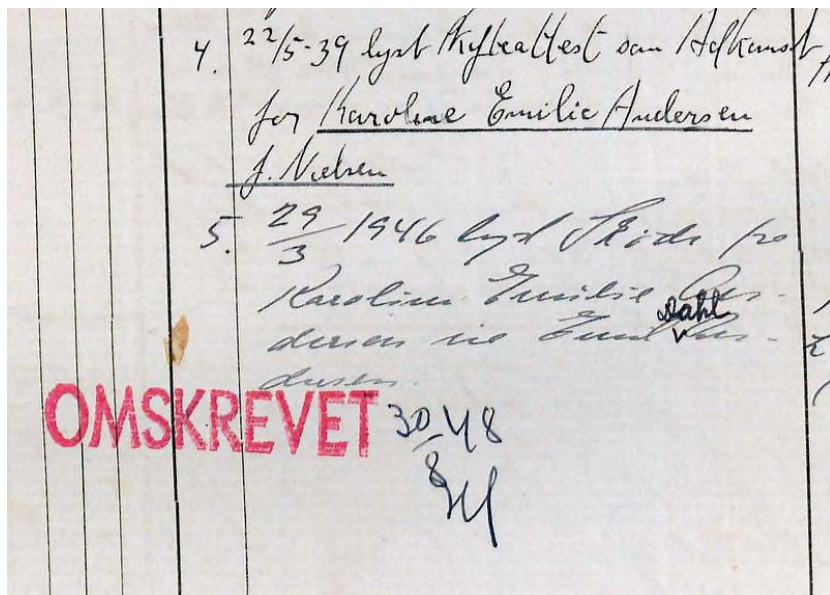 4. 22/5-39 lyst Skifteattest som Adkomst
for Karoline Emilie Andersen
f. Nielsen
5. 29/3 1946 lyst Skøde fra
Karoline Emilie An-
dersen til Emil Dahl An-
dersen.
OMSKREVET 30/8-48